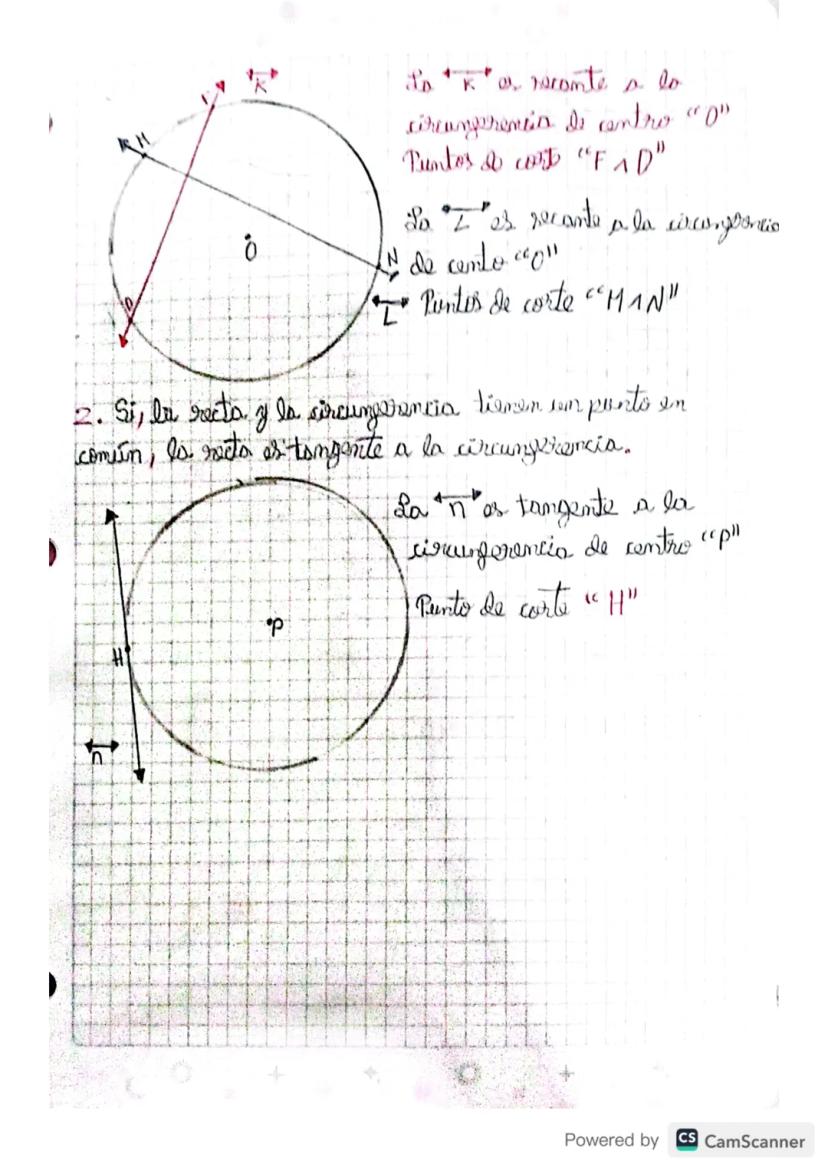 K
La K es secante a la
circunferencia de centro "O"
Puntos de corte "F ∧ D"
F
M
La L es secante a la circunferencia
O
N
de cento "O"
D
L
Puntos de corte "M ∧ N"
2. Si, la recta y la circunferencia tienen un punto en
común, la recta es tangente a la circunferencia.
La n es tangente a la
circunferencia de centro "P"
Punto de corte "H"
P
H
n
Powered by CS CamScanner